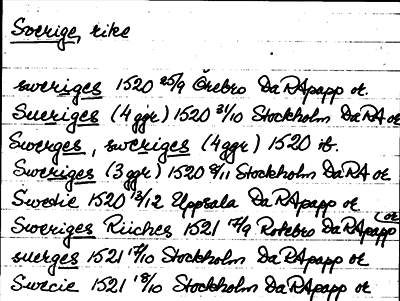 Sverige, rike
sweriges 1520 25/9 Örebro DaRApapp or.
Sueriges (4 ggr) 1520 31/10 Stockholm DaRA or
Swerges, sweriges (4 ggr) 1520 ib.
Sweriges (3 ggr) 1520 8/11 Stockholm DaRA or
Swecie 1520 13/12 Uppsala DaRApapp or
Sweriges Riiches 1521 17/9 Rotebro DaRApapp (or
suerges 1521 17/10 Stockholm DaRApapp or
Swecie 1521 18/10 Stockholm DaRApapp or